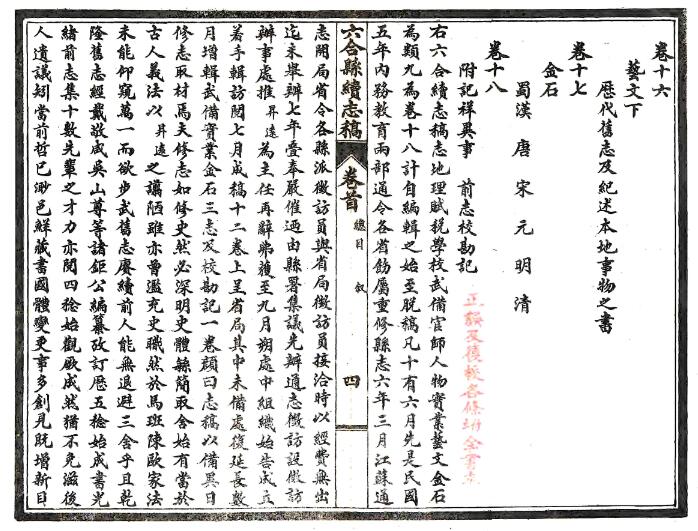 卷十六
藝文下
歷代舊志及紀述本地事物之書
卷十七
金石
蜀漢 唐 宋 元 明 清
卷十八
附記祥異事 前志校勘記
正誤及模校各條
右六合續志稿志地理賦稅學校武備官師人物實業藝文金石
為類九為卷十八計自編輯之始至脫稿凡十有六月先是民國
五年內務教育兩部通令各省飭屬重修縣志六年三月江蘇通
六合縣續志稿 卷首 總目 敘 四
志開局省令各縣派徵訪員與省局徵訪員接洽時以經費無出
迄未舉辦七年叠奉嚴催迺由縣署集議先辦通志徵訪設徵訪
辦事處推昇遠為主任再辭弗獲至九月朔處中組織始告成立
着手輯訪閱七月成稿十二卷上呈省局其中未備處復延長數
月增輯武備實業金石三志及校勘記一卷顏曰志稿以備異日
修志取材焉夫修志如修史然必深明史體繇簡取舍始有當於
古人義法以昇遠之譾陋雖亦曾濫充史職然於馬班陳歐家法
未能仰窺萬一而欲步武舊志賡續前人能無退避三舍乎且乾
隆舊志經戴敬咸吳山尊等諸鉅公編纂攷訂歷五稔始成書光
緒前志集十數先輩之才力亦閱四稔始觀厥成然猶不免滋後
人遺議矧當前哲已渺邑鮮藏書國體變更事多創見既增新目